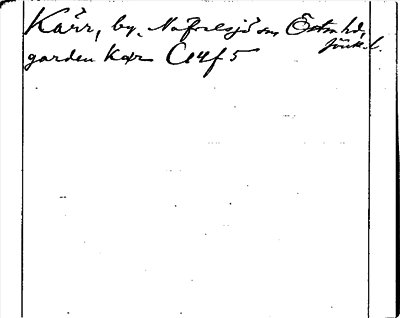 Kärr, by, Näfvelsjö sn, Östra hd,
Jönk. l.
gården Kär C14f 5